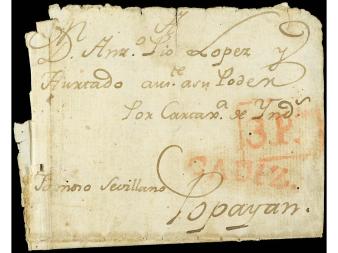 D. Ant.º Pio Lopez y
Hurtado aus.te a su Poder
Por Cartax.a de Ynd.s
3.P.
CADIZ.
Tomoro Sevillano
Popayan.